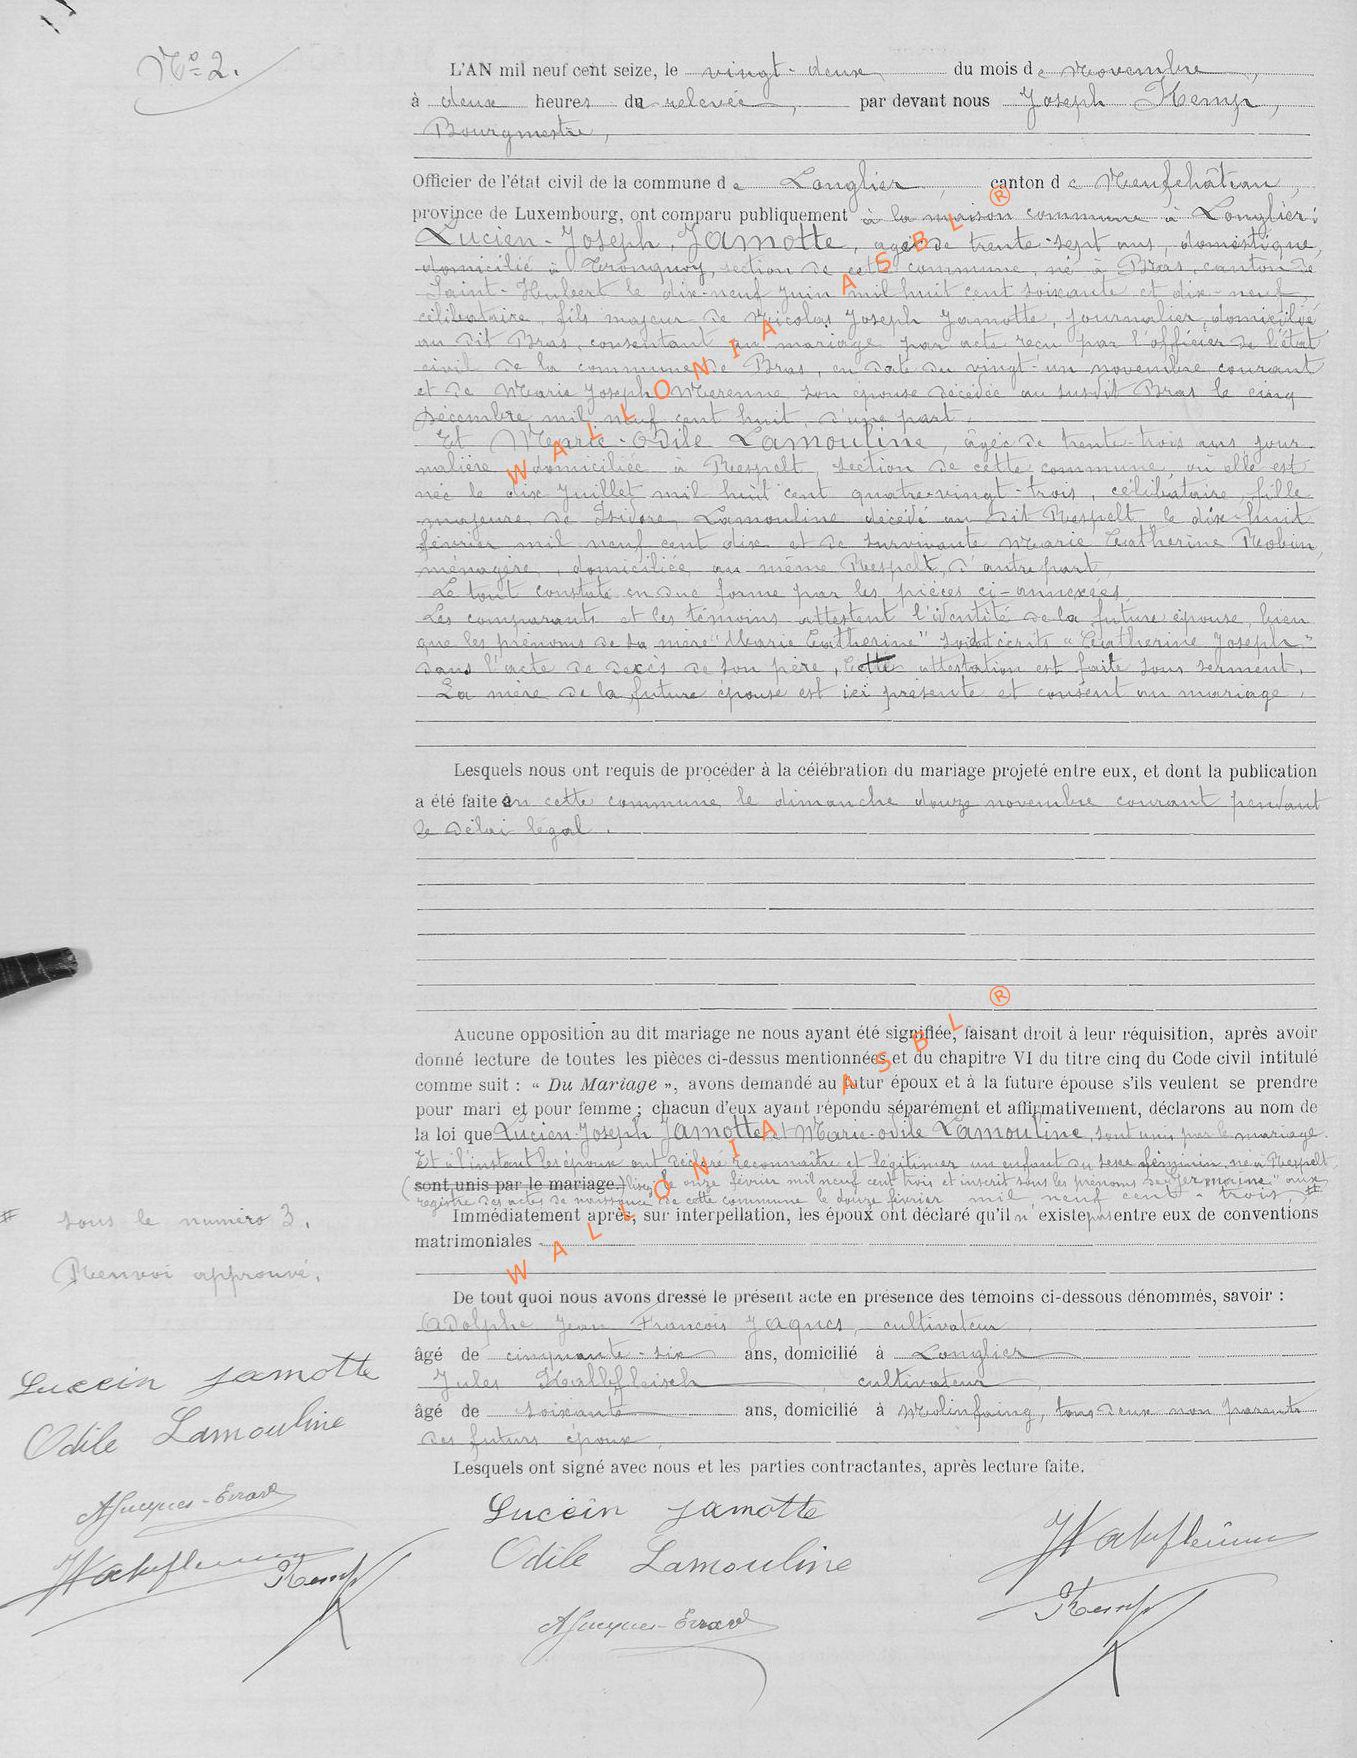 N° 2.
L'AN mil neuf cent seize, le vingt-deux du mois de Novembre,
à deux heures du relevée, par devant nous Joseph Kemp,
Bourgmestre,
Officier de l'état civil de la commune de Longlier, canton de Neufchâteau,
province de Luxembourg, ont comparu publiquement à la maison commune à Longlier:
Lucien-Joseph Jamotte, agé de trente-sept ans, domestique,
domicilié à Tronquoy, section de cette commune, né à Bras, canton de
Saint-Hubert le dix-neuf Juin mil huit cent soixante et dix-neuf,
célibataire, fils majeur de Nicolas Joseph Jamotte, journalier, domicilié
au dit Bras, consentant au mariage par acte reçu par l'officier de l'état
civil de la commune de Bras, en date du vingt-un novembre courant
et de Marie Joseph Merenne son épouse décédée au susdit Bras le cinq
Décembre mil neuf cent huit, d'une part,
Et Marie-Odile Lamouline, âgée de trente-trois ans jour-
nalière, domiciliée à Respelt, section de cette commune, où elle est
née le dix Juillet mil huit cent quatre-vingt-trois, célibataire, fille
majeure de Isidore Lamouline décédé au dit Respelt le dix-huit
février mil neuf cent dix et de survivante Marie Catherine Robin,
ménagère, domiciliée au même Respelt, d'autre part,
Le tout constaté en due forme par les pièces ci-annexées,
Les comparants et les témoins attestent l'identité de la future épouse, bien
que les prénoms de sa mère "Marie Catherine" soient écrits "Catherine Joseph"
dans l'acte de décès de son père, Cette attestation est faite sous serment,
La mère de la future épouse est ici présente et consent au mariage,
Lesquels nous ont requis de procéder à la célébration du mariage projeté entre eux, et dont la publication
a été faite en cette commune le dimanche douze novembre courant pendant
le délai légal.
Aucune opposition au dit mariage ne nous ayant été signifiée, faisant droit à leur réquisition, après avoir
donné lecture de toutes les pièces ci-dessus mentionnées et du chapitre VI du titre cinq du Code civil intitulé
comme suit : « Du Mariage », avons demandé au futur époux et à la future épouse s'ils veulent se prendre
pour mari et pour femme ; chacun d'eux ayant répondu séparément et affirmativement, déclarons au nom de
la loi que Lucien-Joseph Jamotte et Marie-Odile Lamouline, sont unis par le mariage.
Et à l'instant les époux ont déclaré reconnaître et légitimer un enfant du sexe féminin, né à Respelt
sont unis par le mariage. le onze février mil neuf cent trois et inscrit sous les prénoms de "Germaine" aux
registre des actes de naissance de cette commune le douze février mil neuf cent - trois #
# sous le numéro 3.
Renvoi approuvé.
Immédiatement après, sur interpellation, les époux ont déclaré qu'il n'existe pas entre eux de conventions
matrimoniales
De tout quoi nous avons dressé le présent acte en présence des témoins ci-dessous dénommés, savoir :
Adolphe Jean François Jaques, cultivateur
âgé de cinquante-six ans, domicilié à Longlier
Jules Kalbfleisch, cultivateur,
âgé de soixante ans, domicilié à Molinfaing, tous deux non parents
des futurs époux,
Lesquels ont signé avec nous et les parties contractantes, après lecture faite.
Luccin Jamotte
Odile Lamouline
AJacques-Evrard
Kemp
Luccin Jamotte
Odile Lamouline
AJacques-Evrard
Kemp
WALLONIA ASBL ®
WALLONIA ASBL ®